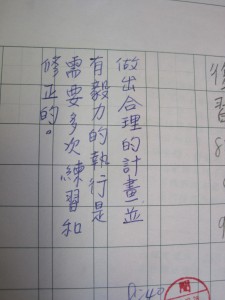 做出合理的計畫並
有毅力的執行是
需要多次練習和
修正的。
修習
8
9
閱